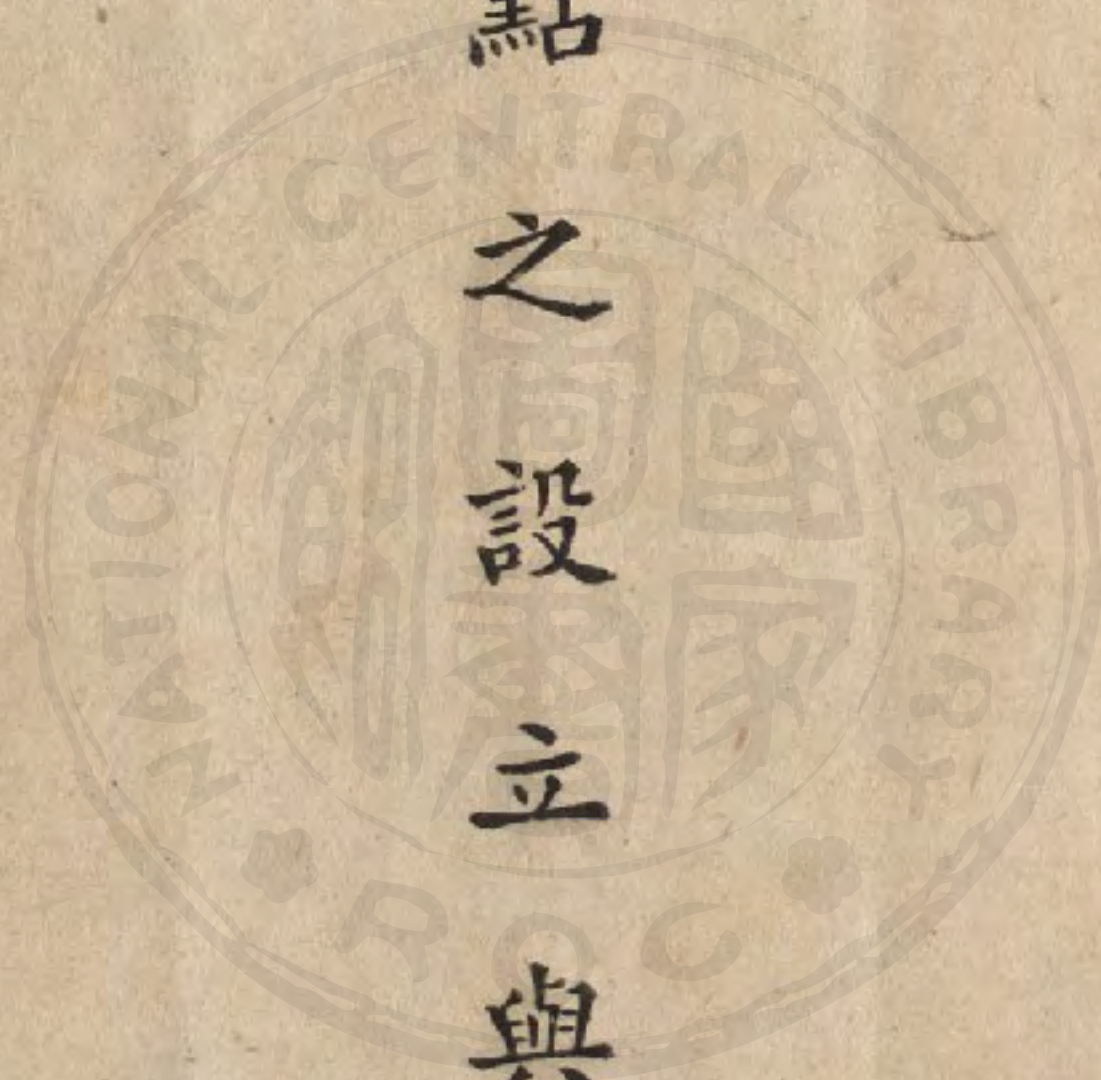 點之設立與
NATIONAL CENTRAL LIBRARY
ROC